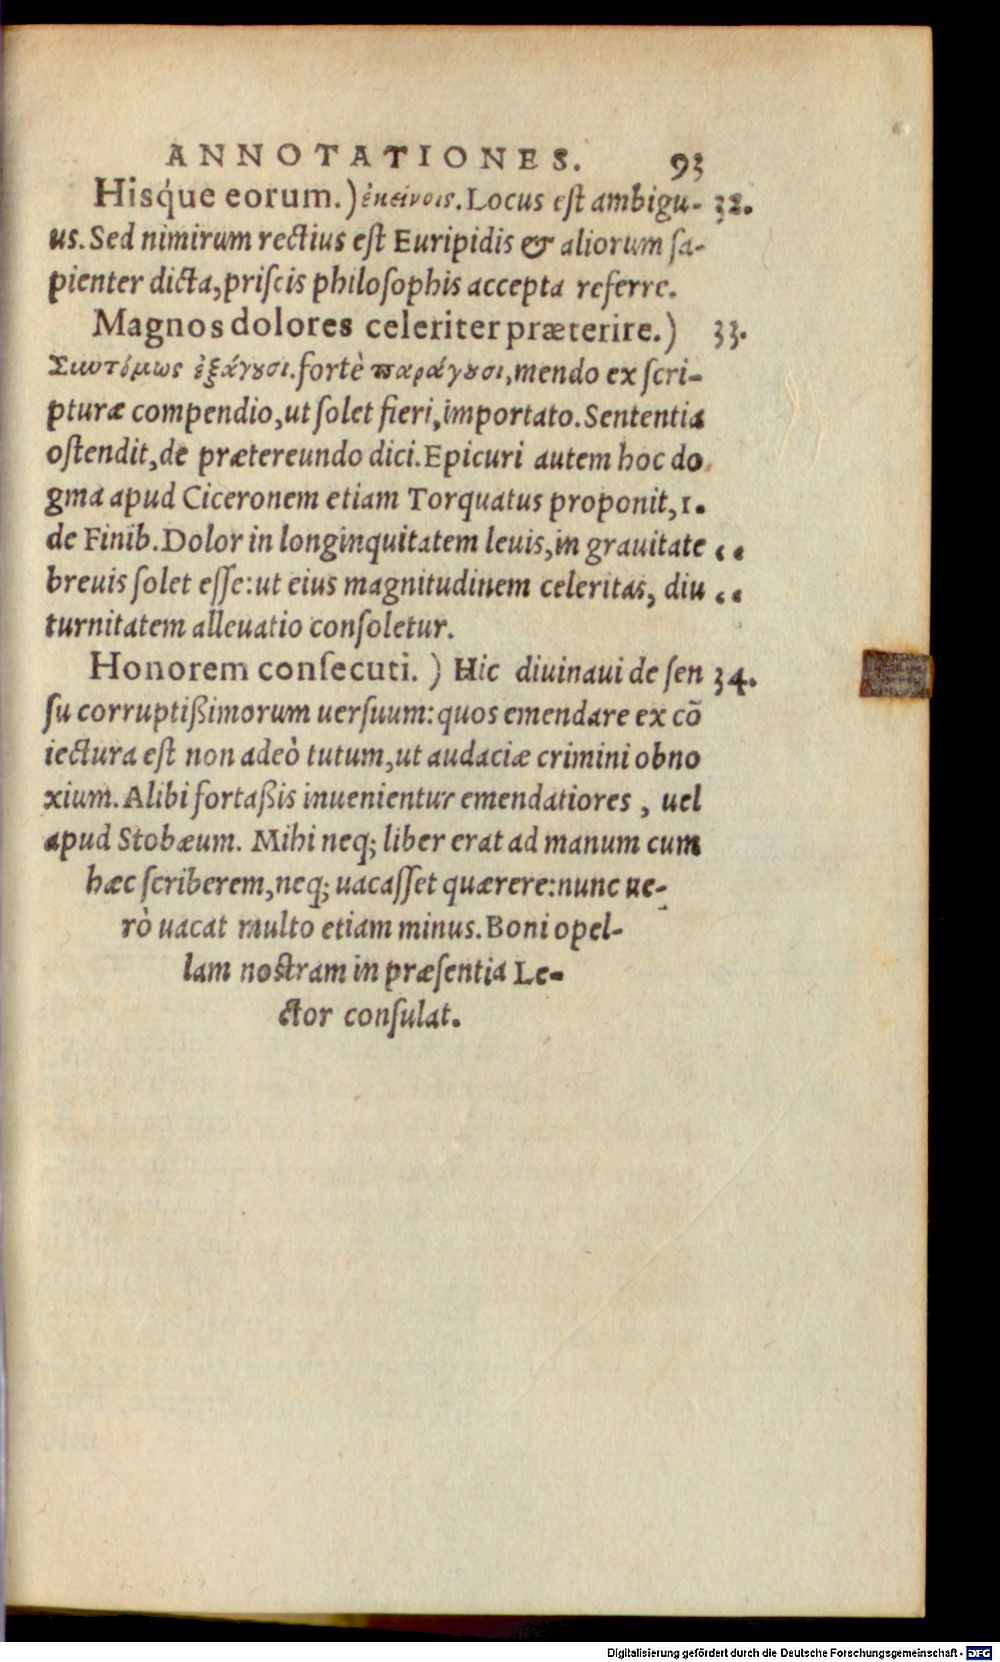 ANNOTATIONES. 93
Hisq́ue eorum.) ἐκείνοις. Locus est ambigu- 32.
us. Sed nimirum rectius est Euripidis & aliorum sa-
pienter dicta, priscis philosophis accepta referre.
Magnos dolores celeriter præterire.) 33.
Συντόμως ἐξάγουσι. fortè παράγουσι, mendo ex scri-
pturæ compendio, ut solet fieri, importato. Sententia
ostendit, de prætereundo dici. Epicuri autem hoc do
gma apud Ciceronem etiam Torquatus proponit, 1.
de Finib. Dolor in longinquitatem leuis, in grauitate “
breuis solet esse: ut eius magnitudinem celeritas, diu “
turnitatem alleuatio consoletur.
Honorem consecuti.) Hic diuinaui de sen 34.
su corruptißimorum uersuum: quos emendare ex cō
iectura est non adeò tutum, ut audaciæ crimini obno
xium. Alibi fortaßis inuenientur emendatiores, uel
apud Stobæum. Mihi neq; liber erat ad manum cum
hæc scriberem, neq; uacasset quærere: nunc ue-
rò uacat multo etiam minus. Boni opel-
lam nostram in præsentia Le-
ctor consulat.
Digitalisierung gefördert durch die Deutsche Forschungsgemeinschaft - DFG